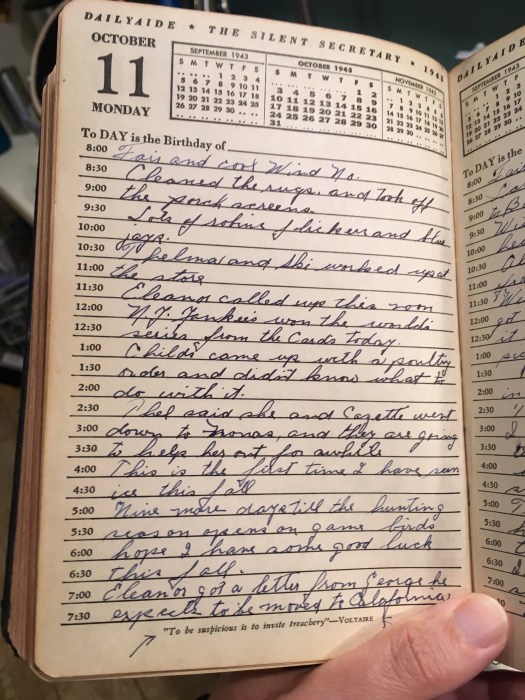 DAILYAIDE ★ THE SILENT SECRETARY ★ 1943
OCTOBER
11
MONDAY
SEPTEMBER 1943
S M T W T F S
1 2 3 4
5 6 7 8 9 10 11
12 13 14 15 16 17 18
19 20 21 22 23 24 25
26 27 28 29 30
OCTOBER 1943
S M T W T F S
1 2
3 4 5 6 7 8 9
10 11 12 13 14 15 16
17 18 19 20 21 22 23
24 25 26 27 28 29 30
31
NOVEMBER 1943
To DAY is the Birthday of
8:00 Fair and cool Wind No.
8:30 Cleaned the rugs, and Took off
9:00 the porch screens.
9:30 Lots of robins flickers and blue
10:00 jays.
10:30 Thelma and Ski worked up at
11:00 the store
11:30 Eleanor called up this noon
12:00 N.Y. Yankees won the world's
12:30 series from the Cards Today.
1:00 Childs came up with a poultry
1:30 order and didn't know what to
2:00 do with it.
2:30 Chel said she and Cozette went
3:00 down to Nonas, and they are going
3:30 to help her out for awhile
4:00 This is the first time I have seen
4:30 ice this fall
5:00 Nine more days till the hunting
5:30 season opens on game birds
6:00 hope I have some good luck
6:30 This fall.
7:00 Eleanor got a letter from George he
7:30 expects to be moved to Calafornia
"To be suspicious is to invite treachery"—VOLTAIRE
DAILYAIDE
SEPTEMBER 1943
To DAY is the
8:00
8:30
9:00
9:30
10:00
10:30
11:00
11:30
12:00 got
12:30 it
1:00
1:30
2:00 in
2:30
3:00
3:30
4:00
4:30
5:00
5:30
6:00
6:30
7:00